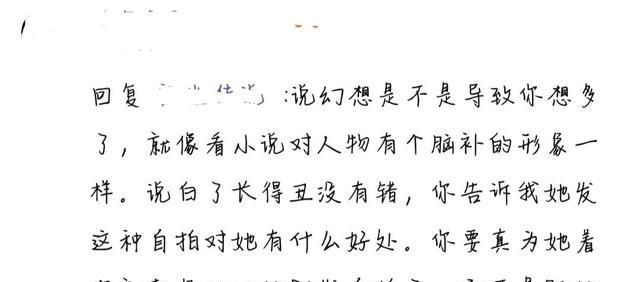 回复 :说幻想是不是导致你想多
了，就像看小说对人物有个脑补的形象一
样。说白了长得丑没有错，你告诉我她发
这种自拍对她有什么好处。你要真为她着